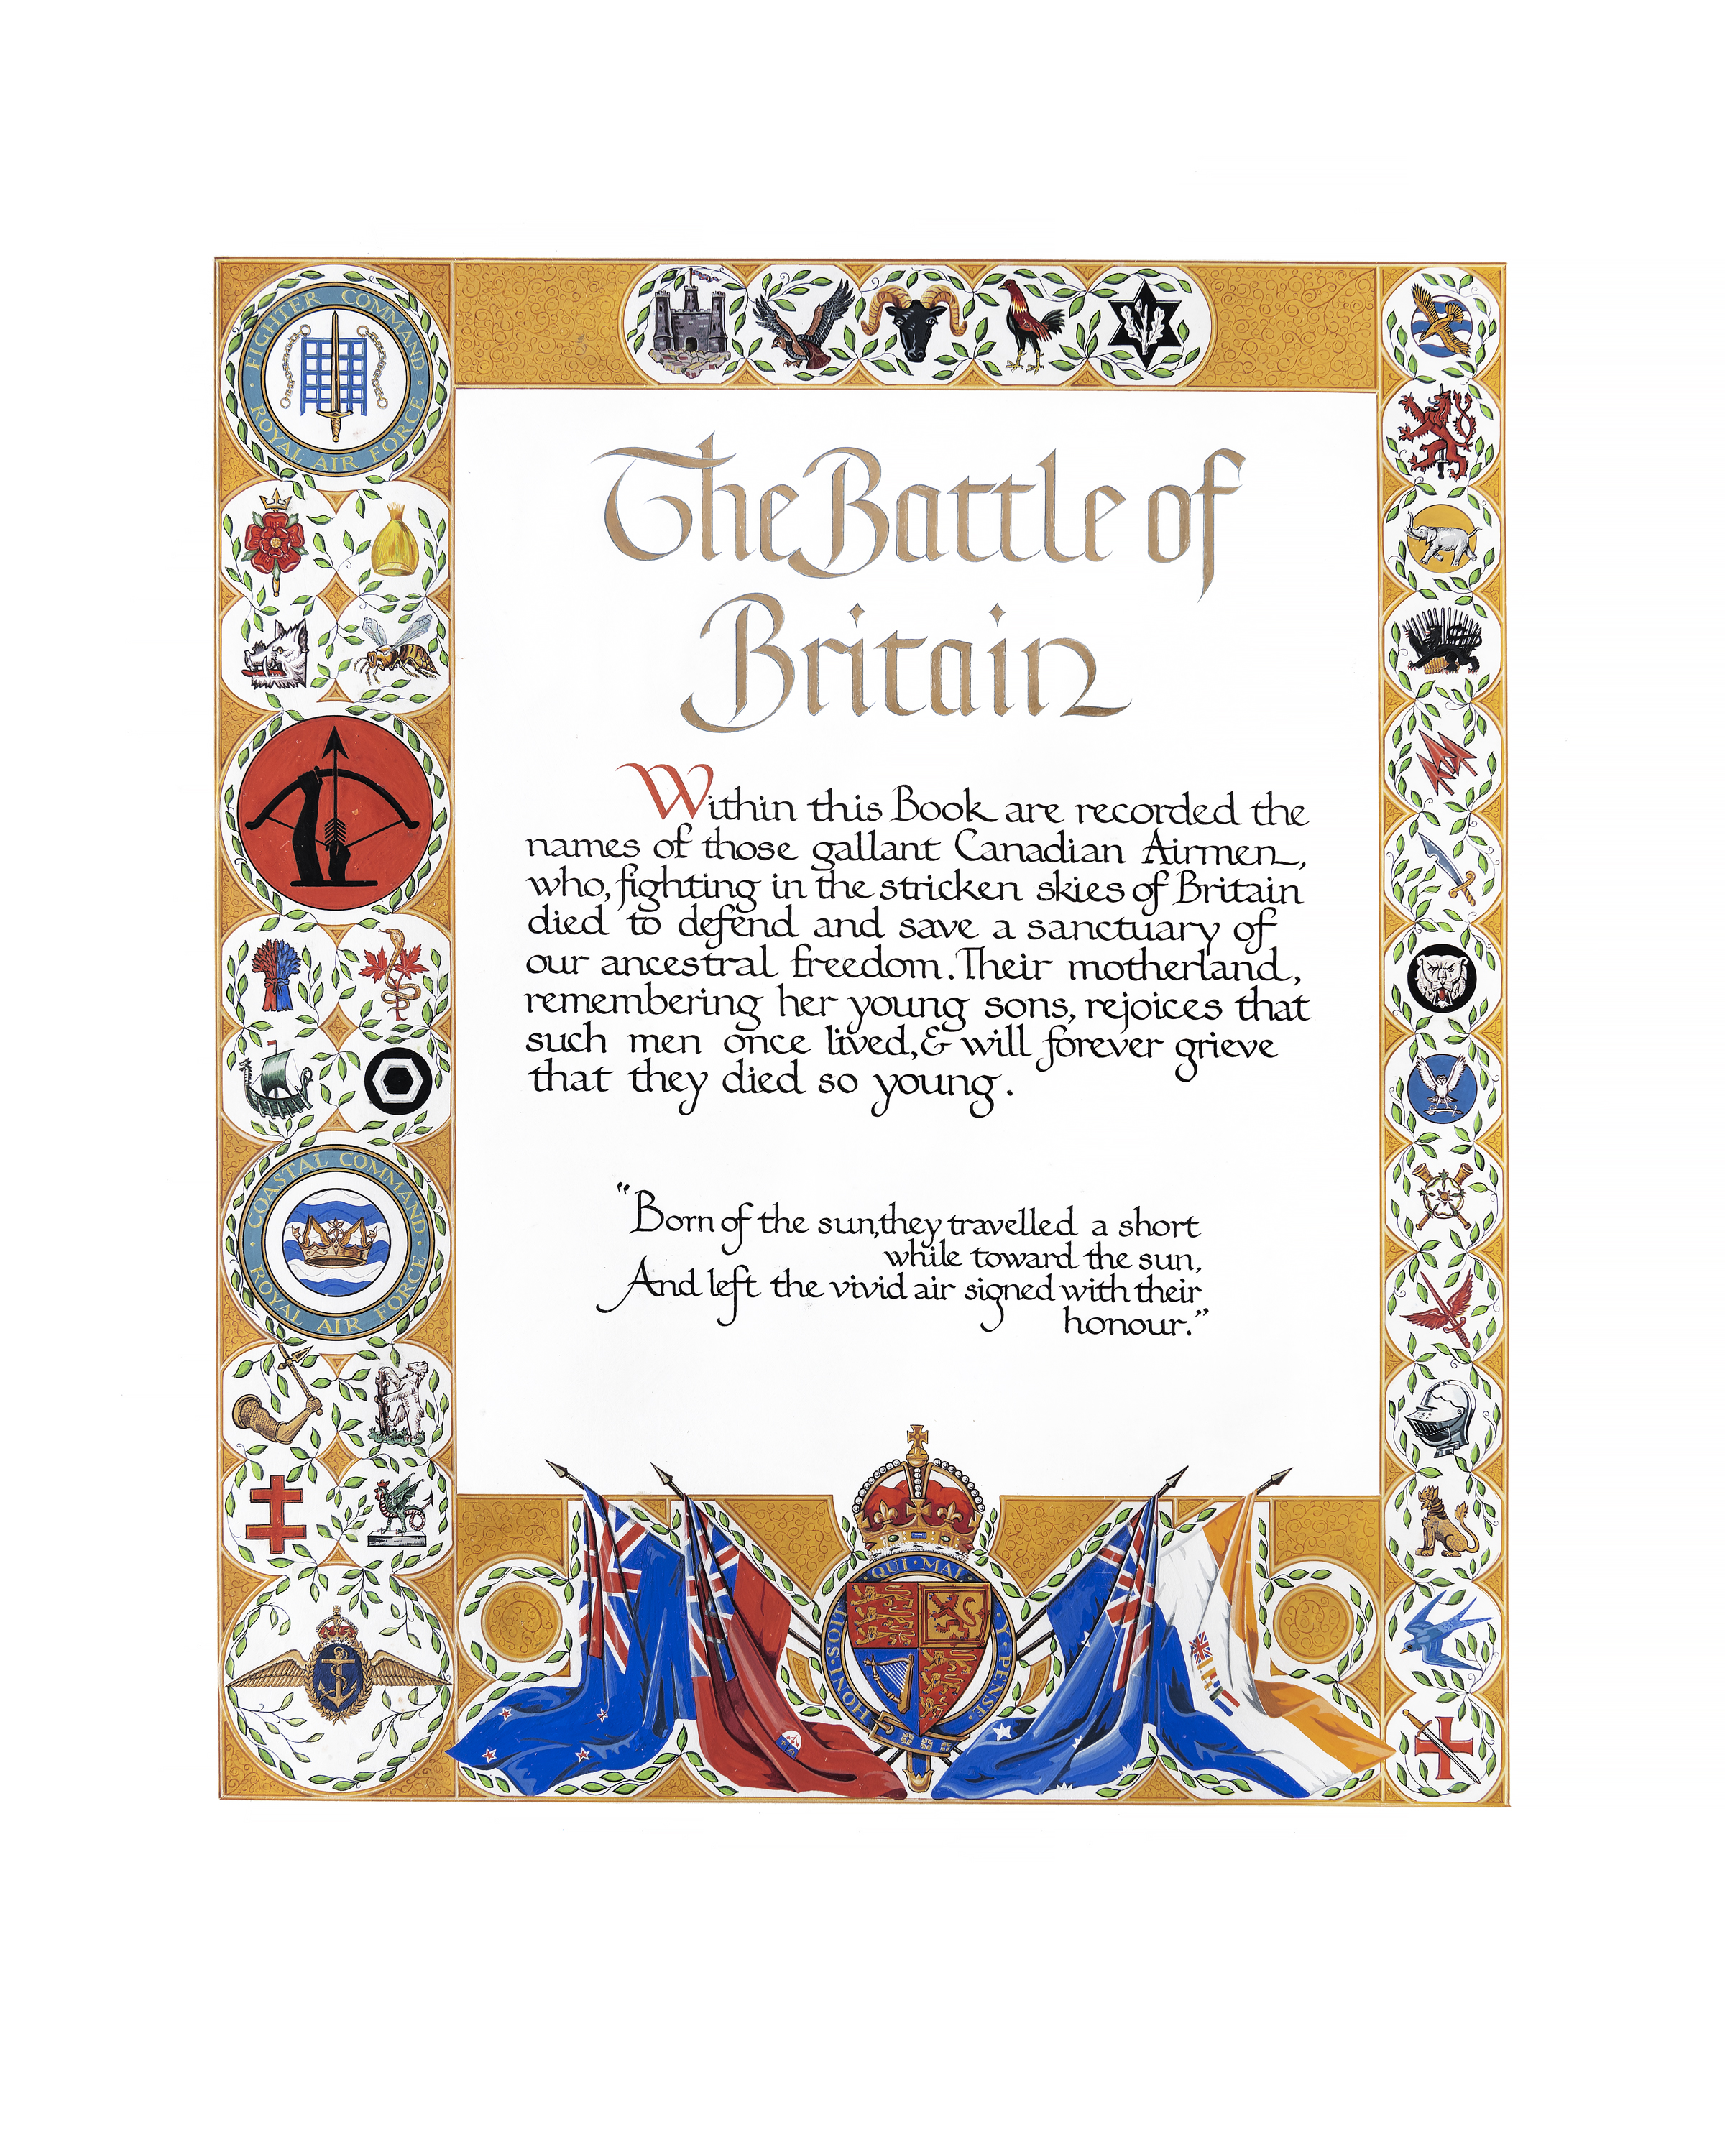 FIGHTER COMMAND
ROYAL AIR FORCE
The Battle of
Britain
Within this Book are recorded the
names of those gallant Canadian Airmen,
who, fighting in the stricken skies of Britain
died to defend and save a sanctuary of
our ancestral freedom. Their motherland,
remembering her young sons, rejoices that
such men once lived, & will forever grieve
that they died so young.
COASTAL COMMAND
ROYAL AIR FORCE
"Born of the sun, they travelled a short
while toward the sun,
And left the vivid air signed with their
honour."
HONI · SOIT · QUI · MAL · Y · PENSE